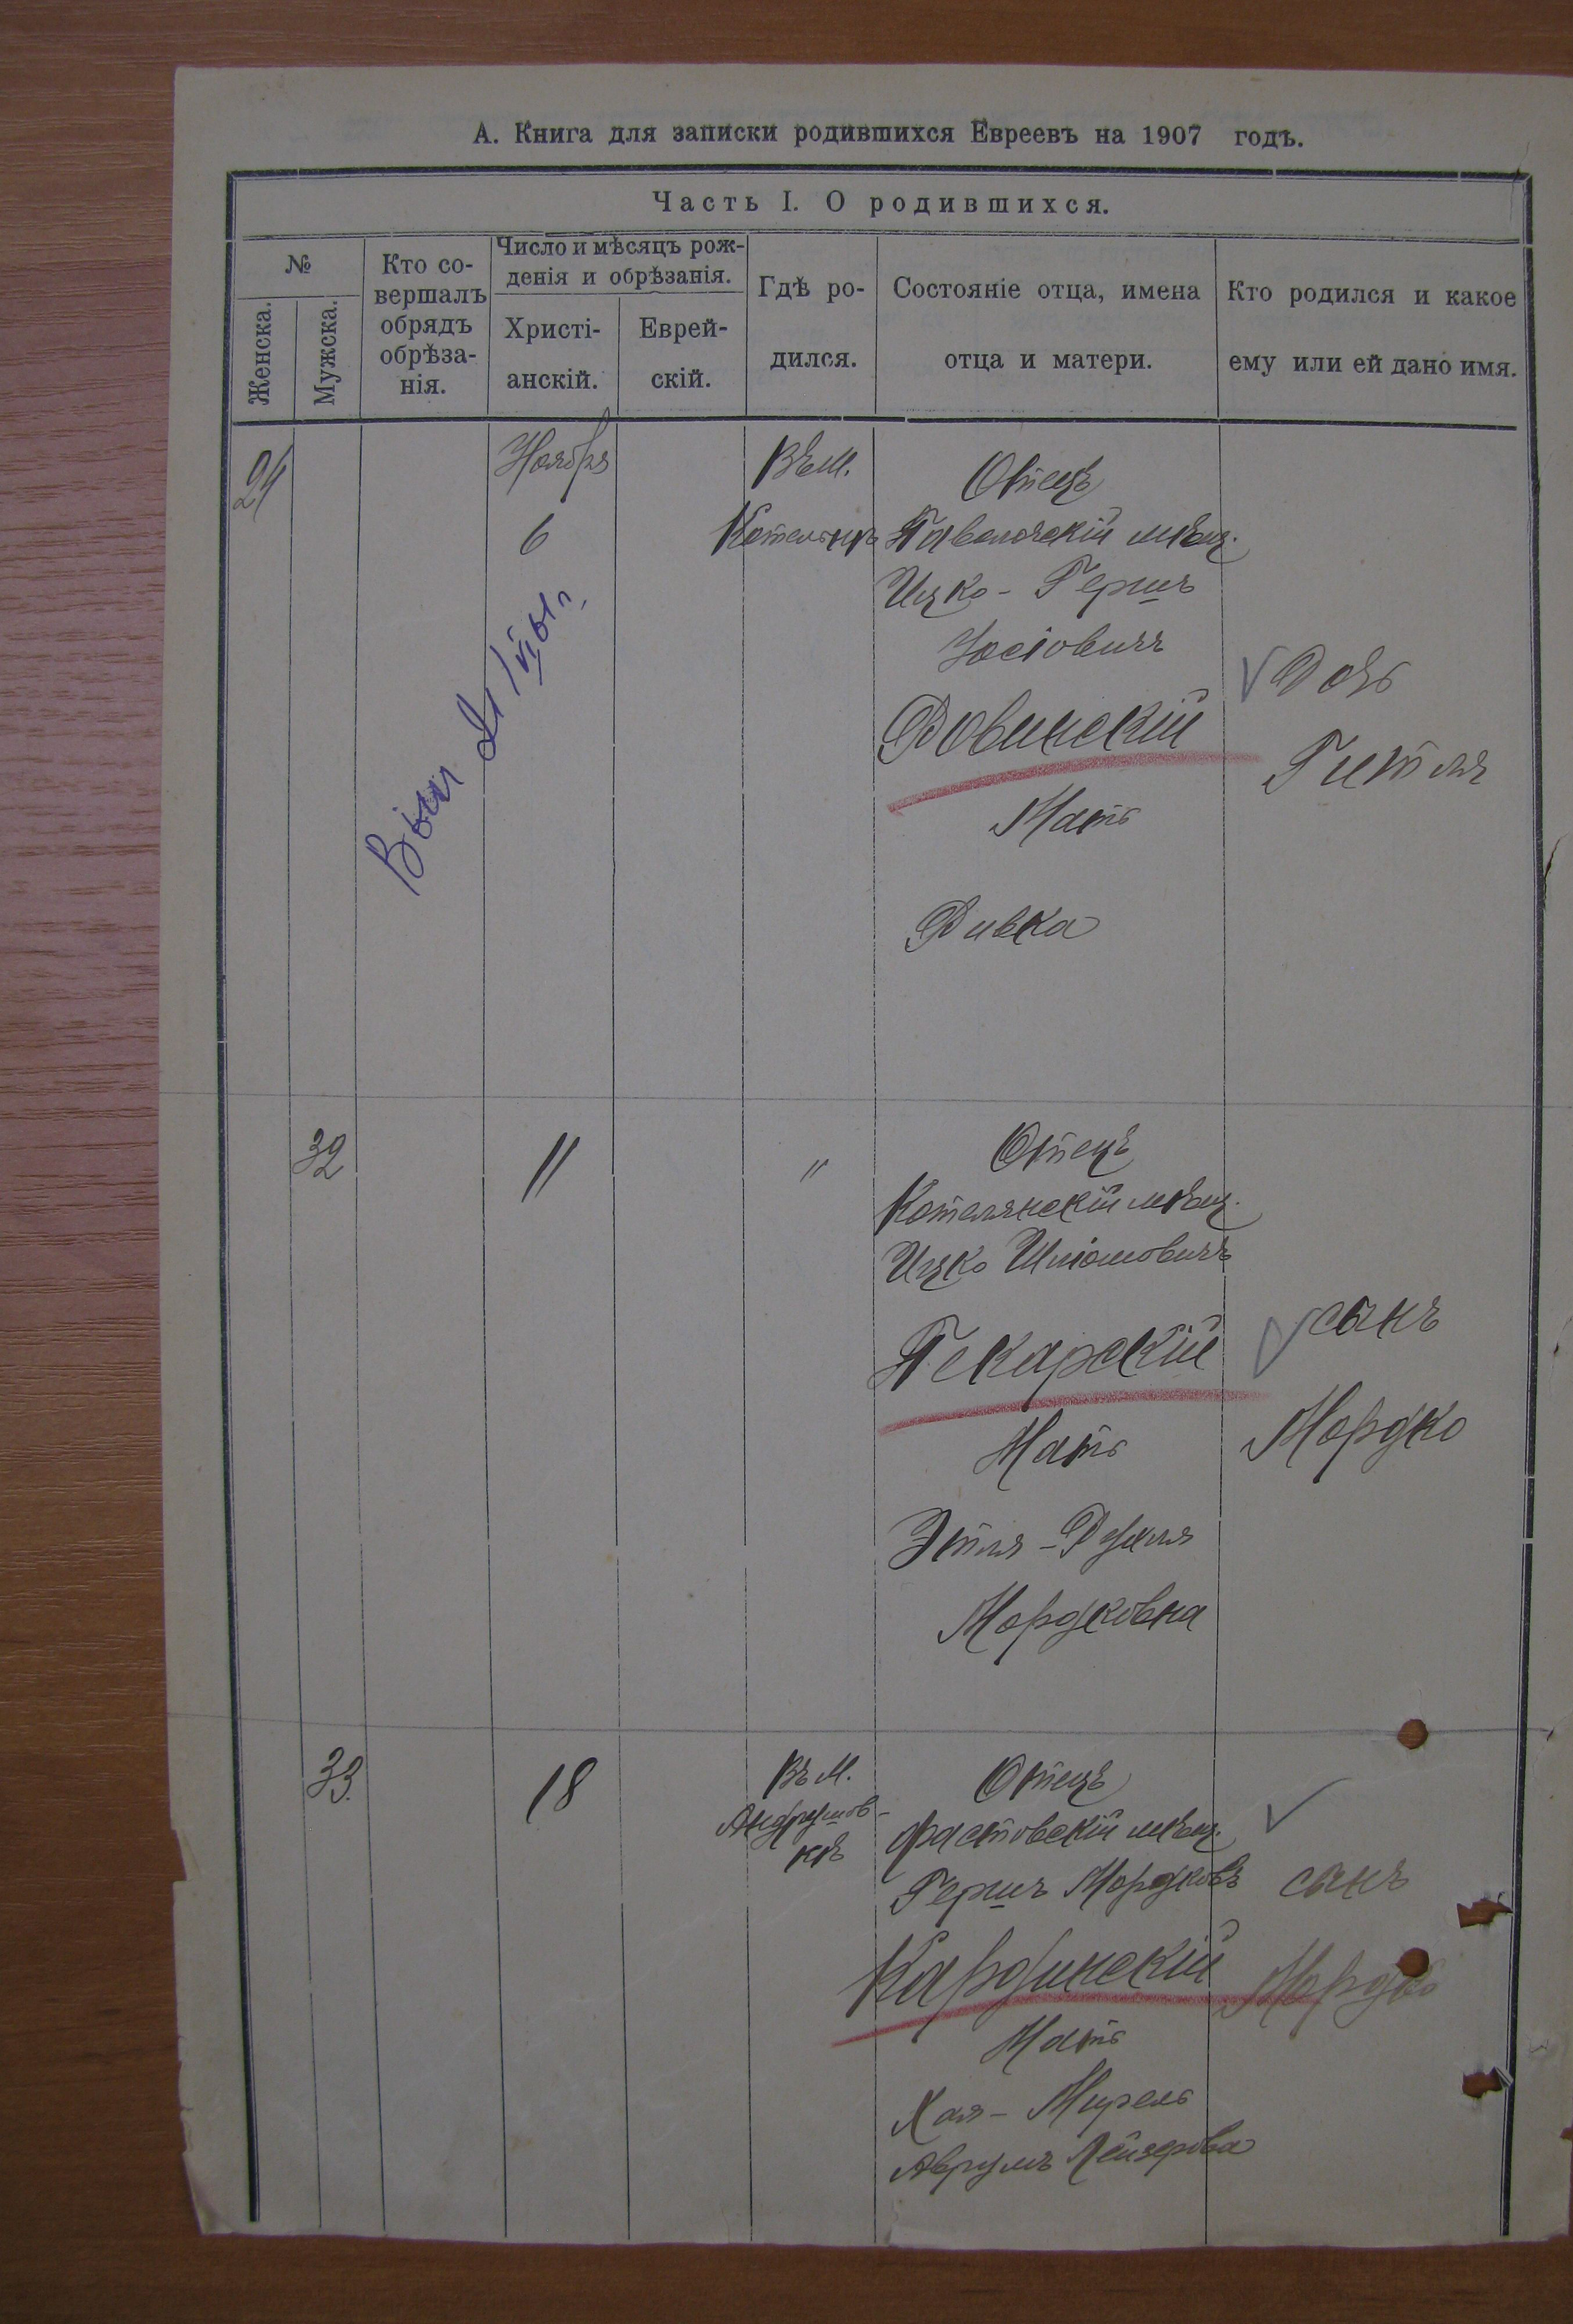 А. Книга для записки родившихся Евреевъ на 1907 годъ.
Часть I. О родившихся.
№
Женска.
Мужска.
Кто со-
вершалъ
обрядъ
обрѣза-
нія.
Число и мѣсяцъ рож-
денія и обрѣзанія.
Христі-
анскій.
Еврей-
скій.
Гдѣ ро-
дился.
Состояніе отца, имена
отца и матери.
Кто родился и какое
ему или ей дано имя.
24
Ноября
6
Въ М.
Котельнѣ
Отецъ
Паволочскій мѣщ.
Ицко - Гершъ
Іосіовичъ
Ровинскій
Мать
Ривка
Дочь
Гитля
32
11
"
Отецъ
Котелянскій мѣщ.
Ицко Шліомовичъ
Пекарскій
Мать
Этля - Рухля
Мордковна
сынъ
Мордко
33.
18
Въ М.
Андрушов-
кѣ
Отецъ
Фастовскій мѣщ.
Гершъ Мордковъ
Кардинскій
Мать
Хая - Мирель
Аврумъ Лейзерова
сынъ
Мордко